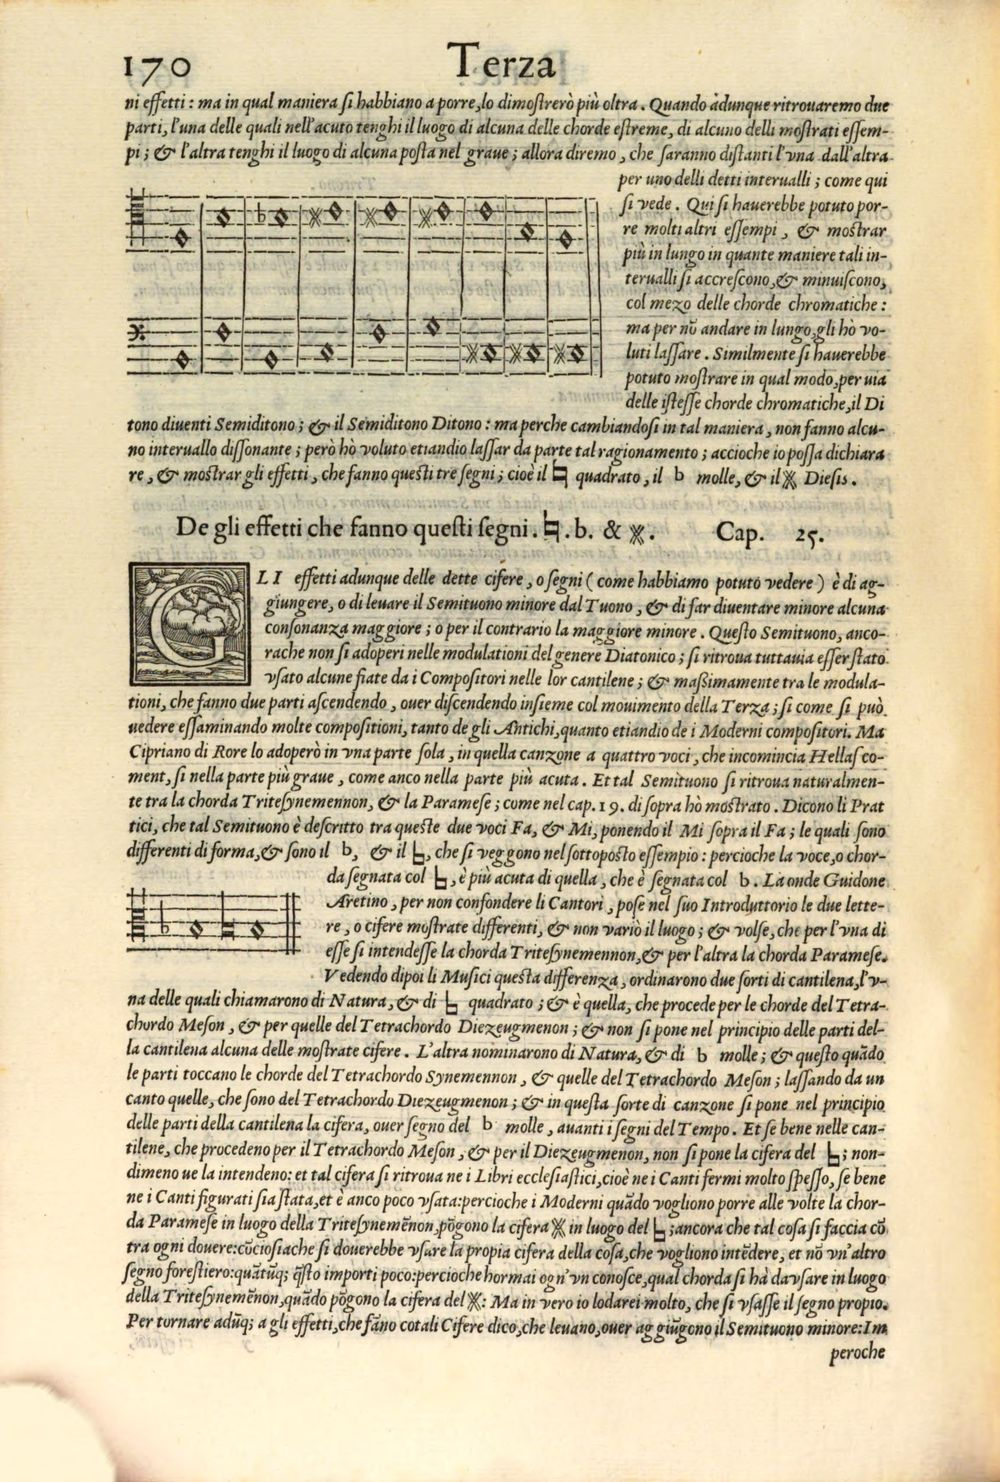 170 Terza
ni effetti : ma in qual maniera ſi habbiano a porre, lo dimoſtrerò più oltra . Quando adunque ritrouaremo due
parti, l'una delle quali nell'acuto tenghi il luogo di alcuna delle chorde eſtreme, di alcuno delli moſtrati eſſem-
pi ; & l'altra tenghi il luogo di alcuna poſta nel graue ; allora diremo , che ſaranno diſtanti l'vna dall'altra
per uno delli detti interualli ; come qui
ſi vede . Qui ſi hauerebbe potuto por-
re molti altri eſſempi , & moſtrar
più in lungo in quante maniere tali in-
terualli ſi accreſcono, & minuiſcono,
col mezo delle chorde chromatiche :
ma per nō andare in lungo, gli hò vo-
luti laſſare . Similmente ſi hauerebbe
potuto moſtrare in qual modo, per uia
delle iſteſſe chorde chromatiche, il Di
tono diuenti Semiditono ; & il Semiditono Ditono : ma perche cambiandoſi in tal maniera , non fanno alcu-
no interuallo diſſonante ; però hò voluto etiandio laſſar da parte tal ragionamento ; accioche io poſſa dichiara
re , & moſtrar gli effetti , che fanno queſti tre ſegni ; cioè il ♮ quadrato , il b molle, & il ※ Dieſis .
De gli effetti che fanno queſti ſegni . ♮ . b. & ※ . Cap. 25.
GLI effetti adunque delle dette cifere , o ſegni ( come habbiamo potuto vedere ) è di ag-
giungere, o di leuare il Semituono minore dal Tuono , & di far diuentare minore alcuna
conſonanza maggiore ; o per il contrario la maggiore minore . Queſto Semituono, anco-
rache non ſi adoperi nelle modulationi del genere Diatonico ; ſi ritroua tuttauia eſſer ſtato
vſato alcune fiate da i Compoſitori nelle lor cantilene ; & maßimamente tra le modula-
tioni, che fanno due parti aſcendendo , ouer diſcendendo inſieme col mouimento della Terza ; ſi come ſi può
uedere eſſaminando molte compoſitioni, tanto de gli Antichi, quanto etiandio de i Moderni compoſitori. Ma
Cipriano di Rore lo adoperò in vna parte ſola , in quella canzone a quattro voci , che incomincia Hellas co-
ment, ſi nella parte più graue , come anco nella parte più acuta . Et tal Semituono ſi ritroua naturalmen-
te tra la chorda Triteſynemennon, & la Parameſe ; come nel cap. 19. di ſopra hò moſtrato . Dicono li Prat
tici, che tal Semituono è deſcritto tra queſte due voci Fa, & Mi, ponendo il Mi ſopra il Fa ; le quali ſono
differenti di forma, & ſono il b, & il ♮, che ſi veggono nel ſottopoſto eſſempio : percioche la voce, o chor-
da ſegnata col ♮, è più acuta di quella , che è ſegnata col b . La onde Guidone
Aretino , per non confondere li Cantori , poſe nel ſuo Introduttorio le due lette-
re , o cifere moſtrate differenti, & non variò il luogo ; & volſe, che per l'vna di
eſſe ſi intendeſſe la chorda Triteſynemennon, & per l'altra la chorda Parameſe.
Vedendo dipoi li Muſici queſta differenza , ordinarono due ſorti di cantilena, l'v-
na delle quali chiamarono di Natura, & di ♮ quadrato ; & è quella, che procede per le chorde del Tetra-
chordo Meſon , & per quelle del Tetrachordo Diezeugmenon ; & non ſi pone nel principio delle parti del-
la cantilena alcuna delle moſtrate cifere . L'altra nominarono di Natura, & di b molle ; & queſto quādo
le parti toccano le chorde del Tetrachordo Synemennon , & quelle del Tetrachordo Meſon ; laſſando da un
canto quelle, che ſono del Tetrachordo Diezeugmenon ; & in queſta ſorte di canzone ſi pone nel principio
delle parti della cantilena la cifera, ouer ſegno del b molle , auanti i ſegni del Tempo . Et ſe bene nelle can-
tilene, che procedeno per il Tetrachordo Meſon , & per il Diezeugmenon, non ſi pone la cifera del ♮ ; non-
dimeno ue la intendeno: et tal cifera ſi ritroua ne i Libri eccleſiaſtici, cioè ne i Canti fermi molto ſpeſſo, ſe bene
ne i Canti figurati ſia ſtata, et è anco poco vſata: percioche i Moderni quādo vogliono porre alle volte la chor-
da Parameſe in luogo della Triteſynemēnon, pōgono la cifera ※ in luogo del ♮ ; ancora che tal coſa ſi faccia cō
tra ogni douere: cōcioſiache ſi douerebbe vſare la propia cifera della coſa, che vogliono intēdere, et nō vn'altro
ſegno foreſtiero: quātūq; q̄ſto importi poco: percioche hormai ogn'vn conoſce, qual chorda ſi hà da vſare in luogo
della Triteſynemēnon, quādo pōgono la cifera del ※: Ma in vero io lodarei molto, che ſi vſaſſe il ſegno propio.
Per tornare adūq; a gli effetti, che fāno cotali Cifere dico, che leuano, ouer aggiūgono il Semituono minore: Im
peroche